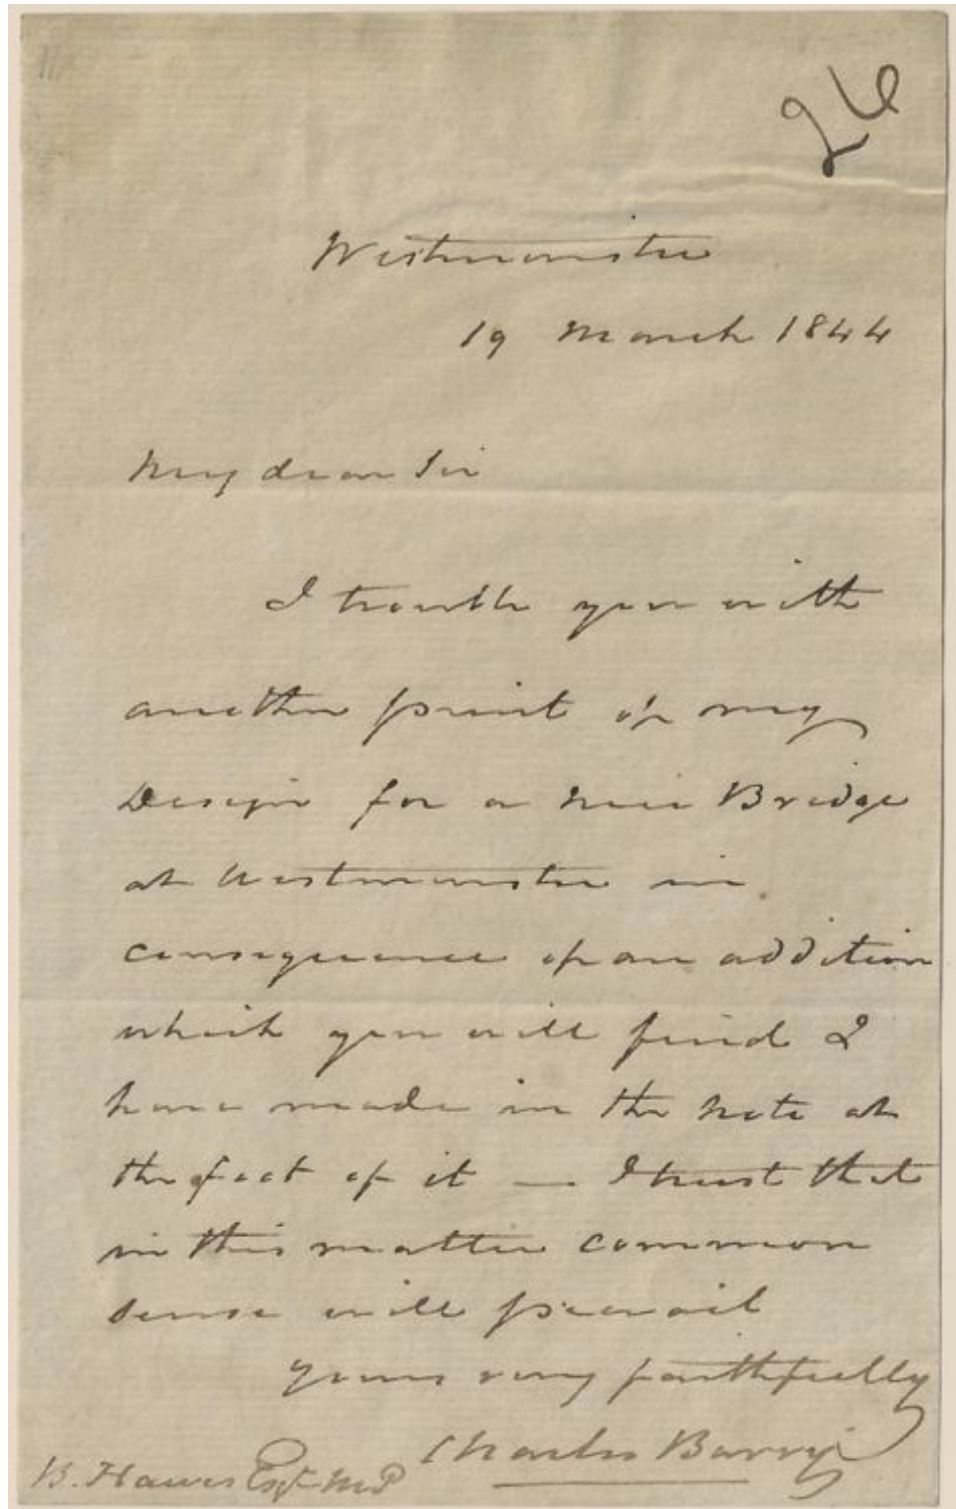 26
Westminster
19 March 1844
My dear Sir
I trouble you with
another print of my
Design for a New Bridge
at Westminster in
consequence of an addition
which you will find I
have made in the Note at
the foot of it — I trust that
in this matter common
sense will prevail
yours very faithfully
Charles Barry
B. Hawes Esqr. M.P